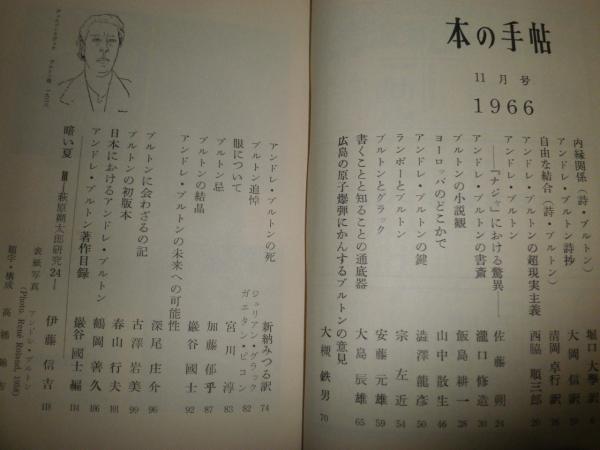 本の手帖
11月号
1966
内縁関係（詩・ブルトン） 堀口大學訳
アンドレ・ブルトン詩抄 大岡信訳
自由な結合（詩・ブルトン） 清岡卓行訳
アンドレ・ブルトンの超現実主義 西脇順三郎 20
アンドレ・ブルトン
――『ナジャ』における驚異―― 佐藤朔 24
アンドレ・ブルトンの書斎 瀧口修造 30
ブルトンの小説観 飯島耕一 28
ヨーロッパのどこかで 山中散生 46
アンドレ・ブルトンの鍵 澁澤龍彦 50
ランボーとブルトン 宗左近 54
ブルトンとグラック 安藤元雄 59
書くことと知ることの通底器 大島辰雄 65
広島の原子爆弾にかんするブルトンの意見 大槻鉄男 70
アンドレ・ブルトンの死 ジュリアン・グラック 新納みつる訳 74
ブルトン追悼 ガエタン・ピコン 82
眼について 宮川淳 83
ブルトン忌 加藤郁乎 87
ブルトンの結晶 巌谷國士 92
アンドレ・ブルトンの未来への可能性 深尾庄介 96
ブルトンに会わざるの記 古澤岩美 99
ブルトンの初版本 春山行夫 101
日本におけるアンドレ・ブルトン 鶴岡善久 106
アンドレ・ブルトン著作目録 巌谷國士編 114
暗い夏 Ⅲ――萩原朔太郎研究24―― 伊藤信吉 118
表紙写真 アンドレ・ブルトン
(Photo René Roland, 1958)
題字・構成 高橋錦吉